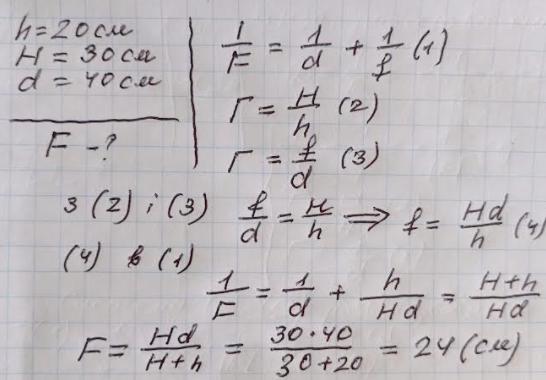 h = 20 см
H = 30 см
d = 40 см
F - ?
1/F = 1/d + 1/f (1)
Г = H/h (2)
Г = f/d (3)
З (2) і (3) f/d = H/h ⟹ f = Hd/h (4)
(4) в (1)
1/F = 1/d + h/Hd = H+h/Hd
F = Hd/H+h = 30·40/30+20 = 24 (см)